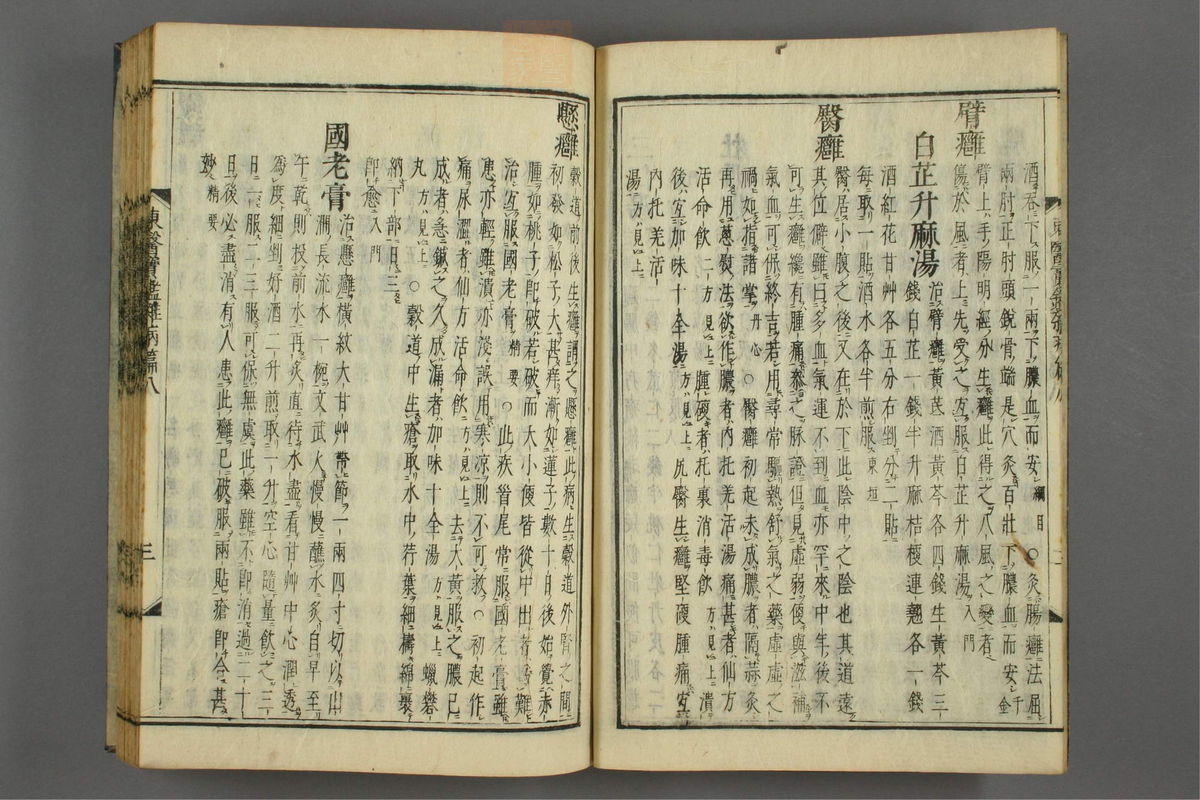 酒吞下服一一兩下膿血而安 綱目 ○灸腸癰法屈
兩肘正肘頭銳骨端是穴灸百壯下膿血而安 千金
臂癰
臂上手陽明經分生癰此得之八風之變者
傷於風者上先受之宜服白芷升麻湯 入門
白芷升麻湯 治臂癰黃芪酒黃芩各四錢生黃芩三
錢白芷一錢半升麻桔梗連翹各一錢
酒紅花甘艸各五分右剉分二貼
每取一貼酒水各半煎服 東垣
臀癰
臀居小腹之後又在於下此陰中之陰也其道遠
其位僻雖曰多血氣運不到血亦罕來中年後不
可生癰纔有腫痛參之脉證但見虛弱便與滋補
氣血可保終吉若用尋常驅熱舒氣之藥虛虛之
禍如指諸掌 丹心 ○臀癰初起未成膿者隔蒜灸
再用葱熨法欲作膿者內托羌活湯痛甚者仙方
活命飮 二方見上 腫硬者托裏消毒飮 方見上 潰
後宜加味十全湯 方見上 尻臀生癰堅硬腫痛宜
內托羌活
湯 方見上
懸癰
穀道前後生癰謂之懸癰此病生穀道外腎之間
初發如松子大甚痒漸如蓮子數十日後始覺赤
腫如桃子即破若破而大小便皆從中出者爲難
治宜服國老膏 精要 ○此疾皆尾常服國老膏雖
患亦輕雖潰亦淺誤用寒涼則不可救○初起作
痛尿澁者仙方活命飮 方見上 去大黃服之膿已
成者急鍼之久成漏者加味十全湯 方見上 蠟礬
丸 方見上 ○穀道中生瘡取水中荇葉細擣綿裹
納下部日三
即愈 入門
國老膏 治懸癰橫紋大甘艸 帶節 一兩四寸切以山
澗長流水一椀文武火慢慢蘸水炙自早至
午乾則投前水再炙直待水盡看甘艸中心潤透
爲度細剉好酒二升煎取一升空心隨量飮之三
日一服二三服可保無虞此藥雖不即消過二十
日後必盡消有人患此癰已破服兩貼瘡即合甚
妙 精要
東醫寶鑑雜病篇八
三